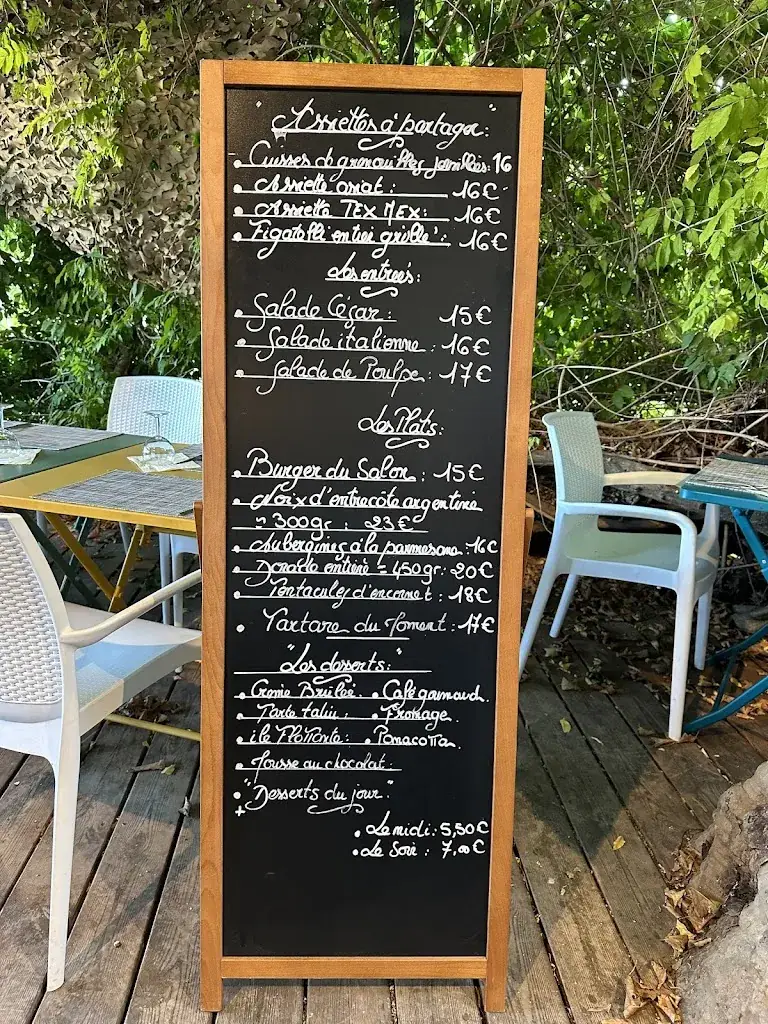 " Assiettes à partager : "
• Cuisses de grenouilles persillées : 16
• Assiette : 16€
• Assiette TEX MEX : 16€
• Figatelli entier grillé : 16€
Les entrées :
• Salade César : 15€
• Salade italienne : 16€
• Salade de Poulpe : 17€
Les Plats :
• Burger du Salon : 15€
• Noix d'entrecôte argentine
~ 300gr : 23€
• Aubergines à la parmesane : 16€
• Dorade entière ~ 450gr : 20€
• Tentacules d'encornet : 18€
• Tartare du Moment : 17€
"Les desserts : "
• Creme Brulée • Café gourmand
• Tarte tatin : • Fromage
• ile Flottante : • Panacotta
• Mousse au chocolat :
• "Desserts du jour"
+
• Le midi : 5,50€
• Le Soir : 7,00€